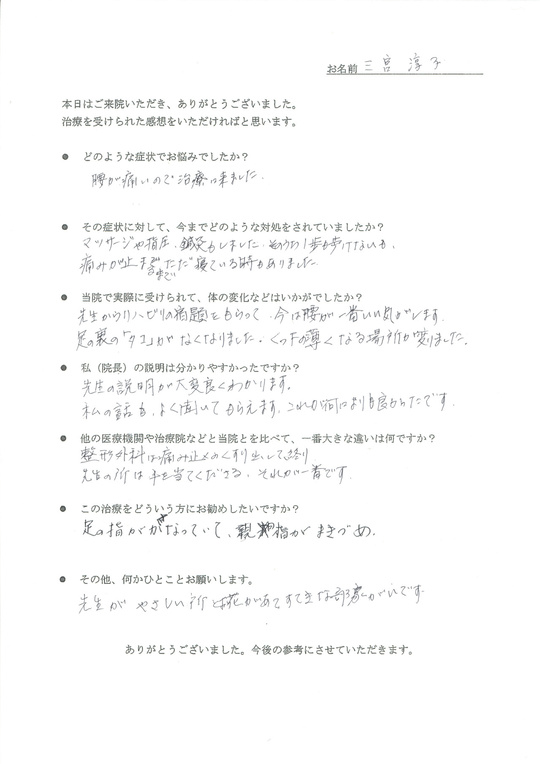 お名前 三宮 淳子
本日はご来院いただき、ありがとうございました。
治療を受けられた感想をいただければと思います。
● どのような症状でお悩みでしたか？
腰が痛いので治療に来ました.
● その症状に対して、今までどのような対処をされていましたか？
マッサージや指圧、鍼灸もしました. そのうち1歩も歩けないから、
痛みが止まるまでただ寝ている時もありました.
● 当院で実際に受けられて、体の変化などはいかがでしたか？
先生からリハビリの宿題をもらって、今は腰が一番いい気がします.
足の裏の「タコ」がなくなりました。くつ下の薄くなる場所が変りました.
● 私（院長）の説明は分かりやすかったですか？
先生の説明が大変良くわかります。
私の話も、よく聞いてもらえます. これが何よりも良かったです.
● 他の医療機関や治療院などと当院とを比べて、一番大きな違いは何ですか？
整形外科は痛み止めのくすり出して終り
先生の所は手を当てくださる、それが一番です.
● この治療をどういう方にお勧めしたいですか？
足の指が なっていて、親指がまきづめ.
● その他、何かひとことお願いします。
先生がやさしい所と花があてすてきな部屋がいいです
ありがとうございました。今後の参考にさせていただきます。